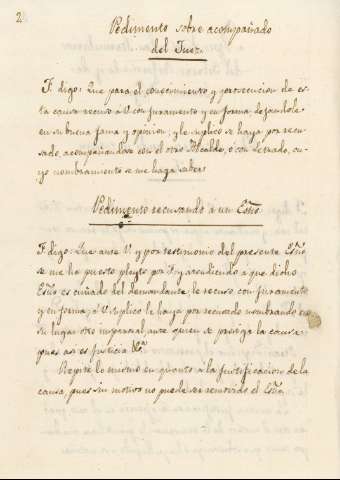 2
Pedimento sobre acompañado
del Juez.
F. digo: Que para el conocimiento y prosecucion de es-
ta causa recuso á V. con juramento y en forma, dejandole
en su buena fama y opinion, y le suplico se haya por recu-
sado, acompañandose con el otro Alcalde, ó con Letrado, cu-
yo nombramiento se me haga saber
Pedimento recusando á un Esño
F. digo: Que ante V. y por testimonio del presente Esño
se me ha puesto pleyto por N. y atendiendo á que dicho
Esño es cuñado del demandante, le recuso con juramento
y en forma; á V. suplico le haya por recusado nombrando en
su lugar otro imparcial ante quien se prosiga la causa
pues asi es justicia &a
Repite lo mismo en quanto á la justificacion de la
causa, pues sin motivo no puede ser removido el Esño